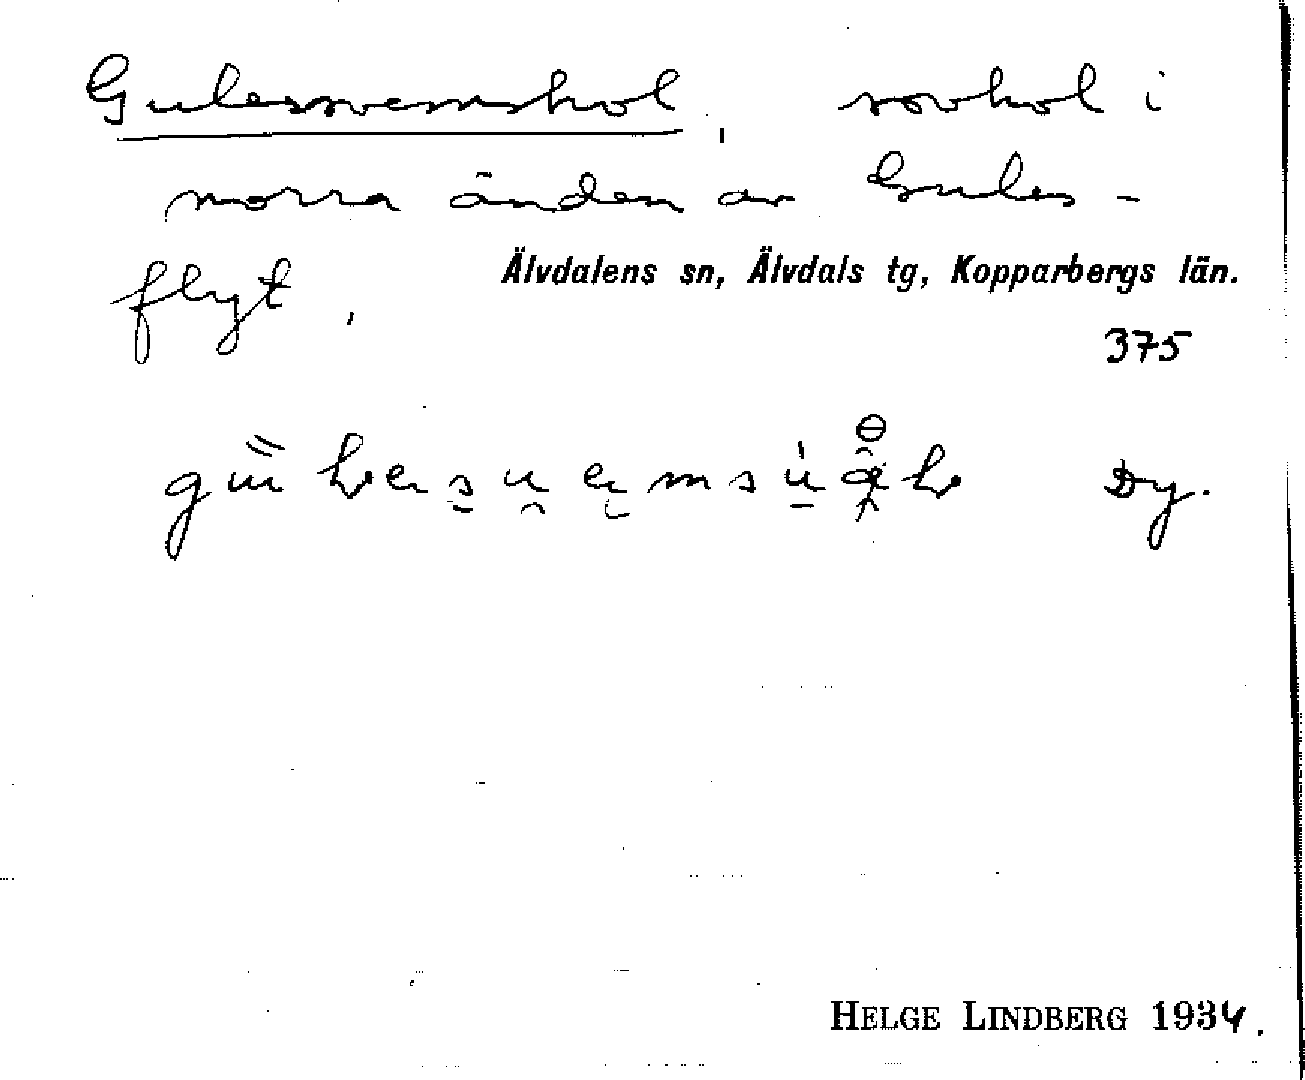 Gulessvemshol, sovhol i
norra änden av Gules-
flyt.
Älvdalens sn, Älvdals tg, Kopparbergs län.
375
Dy.
HELGE LINDBERG 1934.